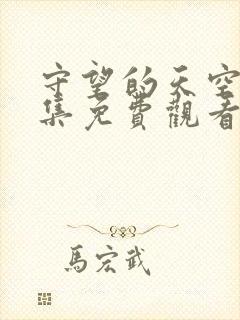 守望的天空
集免費觀看
馬宏武